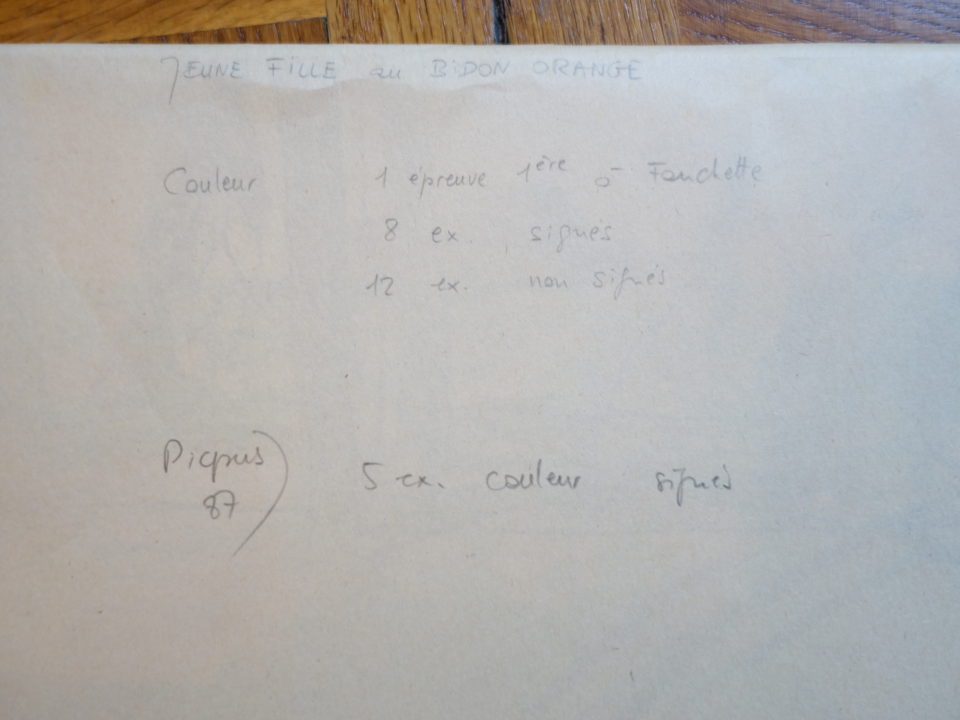 JEUNE FILLE au BIDON ORANGE
Couleur 1 épreuve 1ère à Fanchette
8 ex. signés
12 ex. non signés
Picpus
87
5 ex. couleur signés